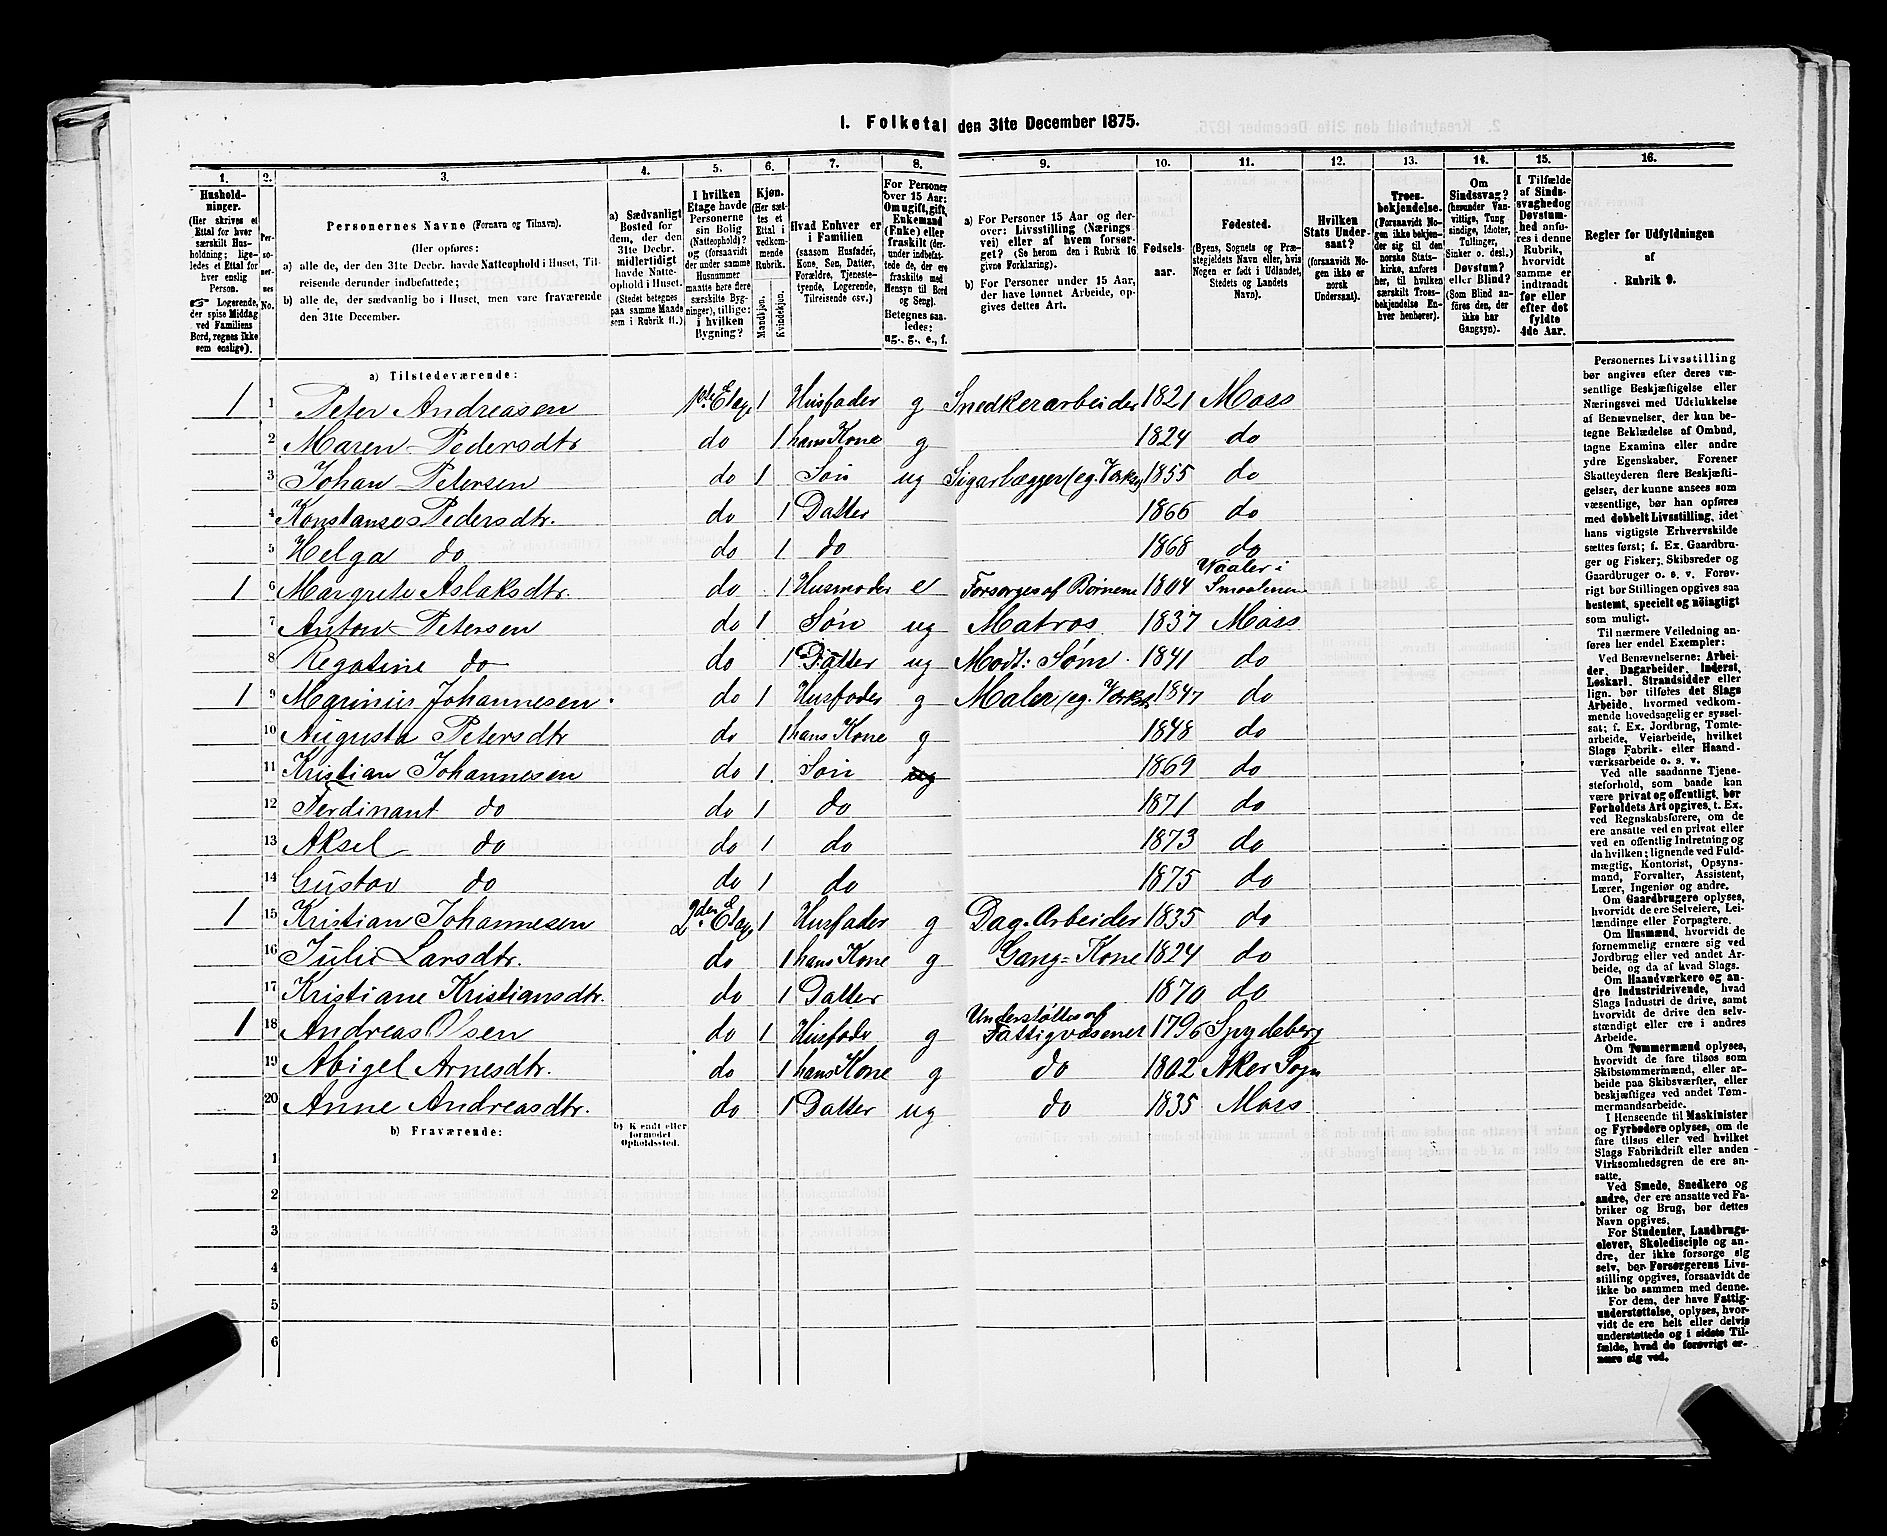 1. Folketal den 31te December 1875.
1. 2. 3. 4. 5. 6. 7. 8. 9. 10. 11. 12. 13. 14. 15. 16.
Hushold-
ninger.
(Her skrives et
Ettal for hver
særskilt Hus-
holdning; lige-
ledes et Ettal for
hver enslig
Person.
☞ Logerende,
der spise Middag
ved Familiens
Bord, regnes ikke
som enslige).
Per-
so-
ner-
nes
No.
Personernes Navne (Fornavn og Tilnavn).
(Her opføres:
a) alle de, der den 31te Decbr. havde Natteophold i Huset, Til-
reisende derunder indbefattede;
b) alle de, der sædvanlig bo i Huset, men vare fraværende
den 31te December.
a) Sædvanligt
Bosted for
dem, der den
31te Decbr.
midlertidigt
havde Natte-
ophold i Huset.
(Stedet betegnes
paa samme Maade
som i Rubrik 11.)
I hvilken
Etage havde
Personerne
sin Bolig
(Natteophold)?
og (forsaavidt
der under samme
Husnummer
maatte høre flere
særskilte Byg-
ninger), tillige:
i hvilken
Bygning?
Kjøn.
(Her sæt-
tes et
Ettal i
vedkom-
mende
Rubrik.
Mandkjøn.
Kvindekjøn.
Hvad Enhver er
i Familien
(saasom Husfader,
Kone, Søn, Datter,
Forældre, Tjeneste-
tyende, Logerende,
Tilreisende osv.)
For Personer
over 15 Aar:
Om ugift, gift,
Enkemand
(Enke) eller
fraskilt (der-
under indbefat-
tede de, der ere
fraskilte med
Hensyn til Bord
og Seng).
Betegnes saa-
ledes:
ug., g., e., f.
a) For Personer 15 Aar og der-
over: Livsstilling (Nærings-
vei) eller af hvem forsør-
get? (Se herom den i Rubrik 16
givne Forklaring).
b) For Personer under 15 Aar,
der have lønnet Arbeide, op-
gives dettes Art.
Fødsels-
aar.
Fødested.
(Byens, Sognets og Præ-
stegjeldets Navn eller, hvis
Nogen er født i Udlandet,
Stedets og Landets
Navn).
Hvilken
Stats Under-
saat?
(forsaavidt No-
gen ikke er
norsk
Undersaat).
Troes-
bekjendelse.
(Forsaavidt No-
gen ikke bekjen-
der sig til den
norske Stats-
kirke, anføres
her, til hvilken
særskilt Troes-
bekjendelse En-
hver henhører).
Om
Sindssvag?
(herunder Van-
vittige, Tung-
sindige, Idioter,
Tullinger,
Sinker o. desl.)
Døvstum?
eller Blind?
(Som Blind an-
føres den, der
ikke har
Gangsyn).
I Tilfælde
af Sinds-
svaghed og
Døvstum-
hed anfø-
res i denne
Rubrik,
hvorvidt
samme er
indtraadt
før eller
efter det
fyldte
4de Aar.
Regler for Udfyldningen
af
Rubrik 9.
a) Tilstedeværende:
1 1 Peter Andreasen 1ste Etage 1 Husfader g Snedkerarbeider 1821 Moss
2 Maren Pedersdtr do 1 hans Kone g 1824 do
3 Johan Petersen do 1 Søn ug Sigarlægger (eg. Verks) 1855 do
4 Konstanse Pedersdtr. do 1 Datter 1866 do
5 Helga do do 1 do 1868 do
1 6 Margrete Aslaksdtr. do 1 Husmoder e Forsørges af Børnene 1804 Vaaler i Smaalenene
7 Anton Petersen do 1 Søn ug Matros 1837 Moss
8 Regatine do do 1 Datter ug Modt: Søm. 1841 do
1 9 Marinius Johannesen do 1 Husfader g Maler (eg. Verks. 1847 do
10 Augusta Petersdtr do 1 hans Kone g 1848 do
11 Kristian Johannesen do 1 Søn ug 1869 do
12 Ferdinant do do 1 do 1871 do
13 Aksel do do 1 do 1873 do
14 Gustav do do 1 do 1875 do
1 15 Kristian Johannesen 2den Etage 1 Husfader g Dag-Arbeider 1835 do
16 Julie Larsdtr. do 1 hans Kone g Gang=Kone 1824 do
17 Kristiane Kristiansdtr. do 1 Datter 1870 do
1 18 Andreas Olsen do 1 Husfader g Understøttes af Fattigvæsenet 1796 Spydeberg
19 Abigel Arnesdtr. do 1 hans Kone g do 1802 Aker Sogn
20 Anne Andreasdtr. do 1 Datter ug do 1835 Moss
b) Fraværende:
b) Kjendt eller
formodet
Opholdssted.
1
2
3
4
5
6
Personernes Livsstilling
bør angives efter deres væ-
sentlige Beskjæftigelse eller
Næringsvei med Udelukkelse
af Benævnelser, der kun be-
tegne Beklædelse af Ombud,
tagne Examina eller andre
ydre Egenskaber. Forener
Skatteyderen flere Beskjæfti-
gelser, der kunne ansees som
væsentlige, bør han opføres
med dobbelt Livsstilling, idet
hans vigtigste Erhvervskilde
sættes først; f. Ex. Gaardbru-
ger og Fisker; Skibsreder og
Gaardbruger o. s. v. Forøv-
rigt bør Stillingen opgives saa
bestemt, specielt og nøiagtigt
som muligt.
Til nærmere Veiledning an-
føres her endel Exempler:
Ved Benævnelserne: Arbei-
der, Dagarbeider, Inderst,
Løskarl, Strandsidder eller
lign. bør tilføies det Slags
Arbeide, hvormed vedkom-
mende hovedsagelig er syssel-
sat; f. Ex. Jordbrug, Tomte-
arbeide, Veiarbeide, hvilket
Slags Fabrik- eller Haand-
værksarbeide o. s. v.
Ved alle saadanne Tjene-
steforhold, som baade kan
være privat og offentligt, bør
Forholdets Art opgives, t. Ex.
ved Regnskabsførere, om de
ere ansatte ved en privat eller
ved en offentlig Indretning og
da hvilken; lignende ved Fuld-
mægtig, Kontorist, Opsyns-
mand, Forvalter, Assistent,
Lærer, Ingeniør og andre.
Om Gaardbrugere oplyses,
hvorvidt de ere Selveiere, Lei-
lændinge eller Forpagtere.
Om Husmænd, hvorvidt de
fornemmelig ernære sig ved
Jordbrug eller ved andet Ar-
beide, og da af hvad Slags.
Om Haandværkere og an-
dre Industridrivende, hvad
Slags Industri de drive, samt
hvorvidt de drive den selv-
stændigt eller ere i andres
Arbeide.
Om Tømmermænd oplyses,
hvorvidt de fare tilsøs som
Skibstømmermænd, eller ar-
beide paa Skibsværfter, eller
beskjæftiges ved andet Tøm-
mermandsarbeide.
I Henseende til Maskinister
og Fyrbødere oplyses, om de
fare tilsøs eller ved hvilket
Slags Fabrikdrift eller anden
Virksomhedsgren de ere an-
satte.
Ved Smede, Snedkere og
andre, der ere ansatte ved Fa-
briker og Brug, bør dettes
Navn opgives.
For Studenter, Landbrugs-
elever, Skoledisciple og an-
dre, der ikke forsørge sig
selv, bør Forsørgerens Livs-
stilling opgives, forsaavidt de
ikke bo sammen med denne.
For dem, der have Fattig-
understøttelse, oplyses, hvor-
vidt de ere helt eller delvis
understøttede og i sidste Til-
fælde, hvad de forøvrigt er-
nære sig ved.